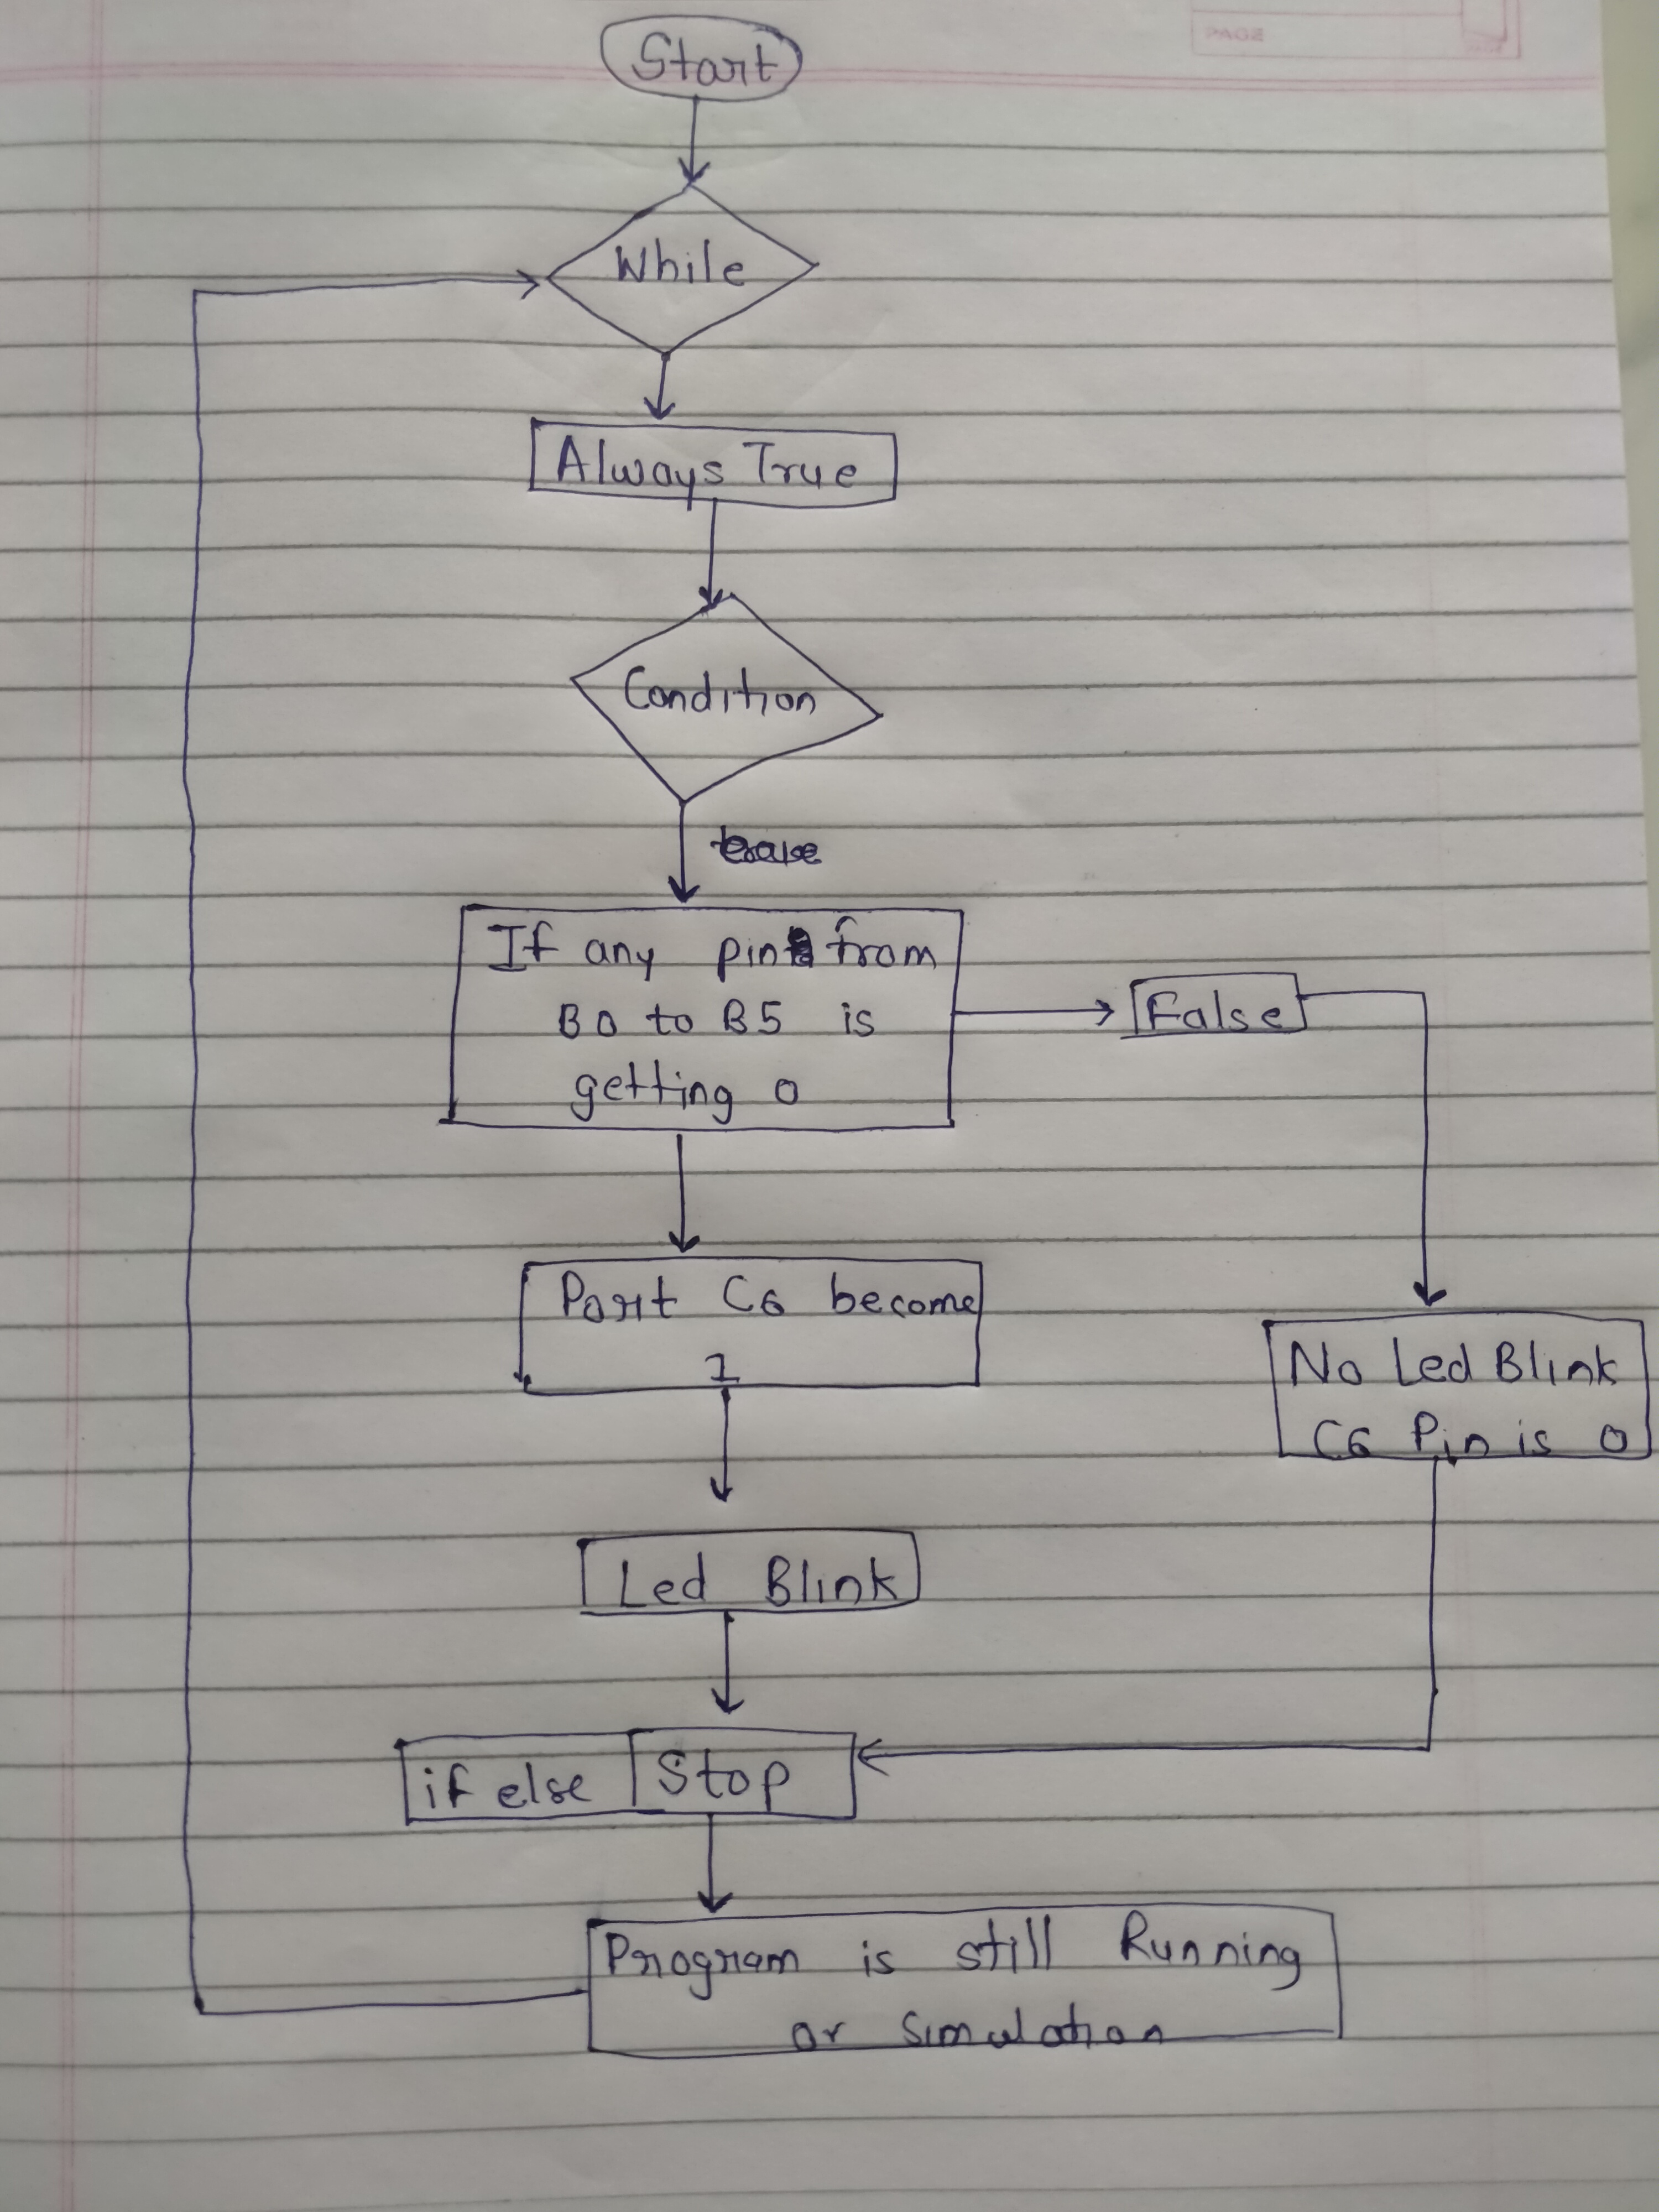 PAGE
Start
While
Always True
Condition
If any pin from
B0 to B5 is
getting 0
False
Port C6 become
1
No Led Blink
C6 Pin is 0
Led Blink
if else Stop
Program is still Running
or Simulation